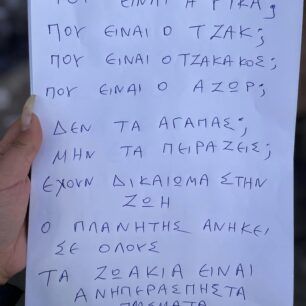 ΠΟΥ ΕΙΝΑΙ Η ΡΙΚΑ;
ΠΟΥ ΕΙΝΑΙ Ο ΤΖΑΚ;
ΠΟΥ ΕΙΝΑΙ Ο ΤΖΑΚΑΚΟΣ;
ΠΟΥ ΕΙΝΑΙ Ο ΑΖΩΡ;
ΔΕΝ ΤΑ ΑΓΑΠΑΣ;
ΜΗΝ ΤΑ ΠΕΙΡΑΖΕΙΣ;
ΕΧΟΥΝ ΔΙΚΑΙΩΜΑ ΣΤΗΝ
ΖΩΗ
Ο ΠΛΑΝΗΤΗΣ ΑΝΗΚΕΙ
ΣΕ ΟΛΟΥΣ
ΤΑ ΖΩΑΚΙΑ ΕΙΝΑΙ
ΑΝΗΠΕΡΑΣΠΗΣΤΑ